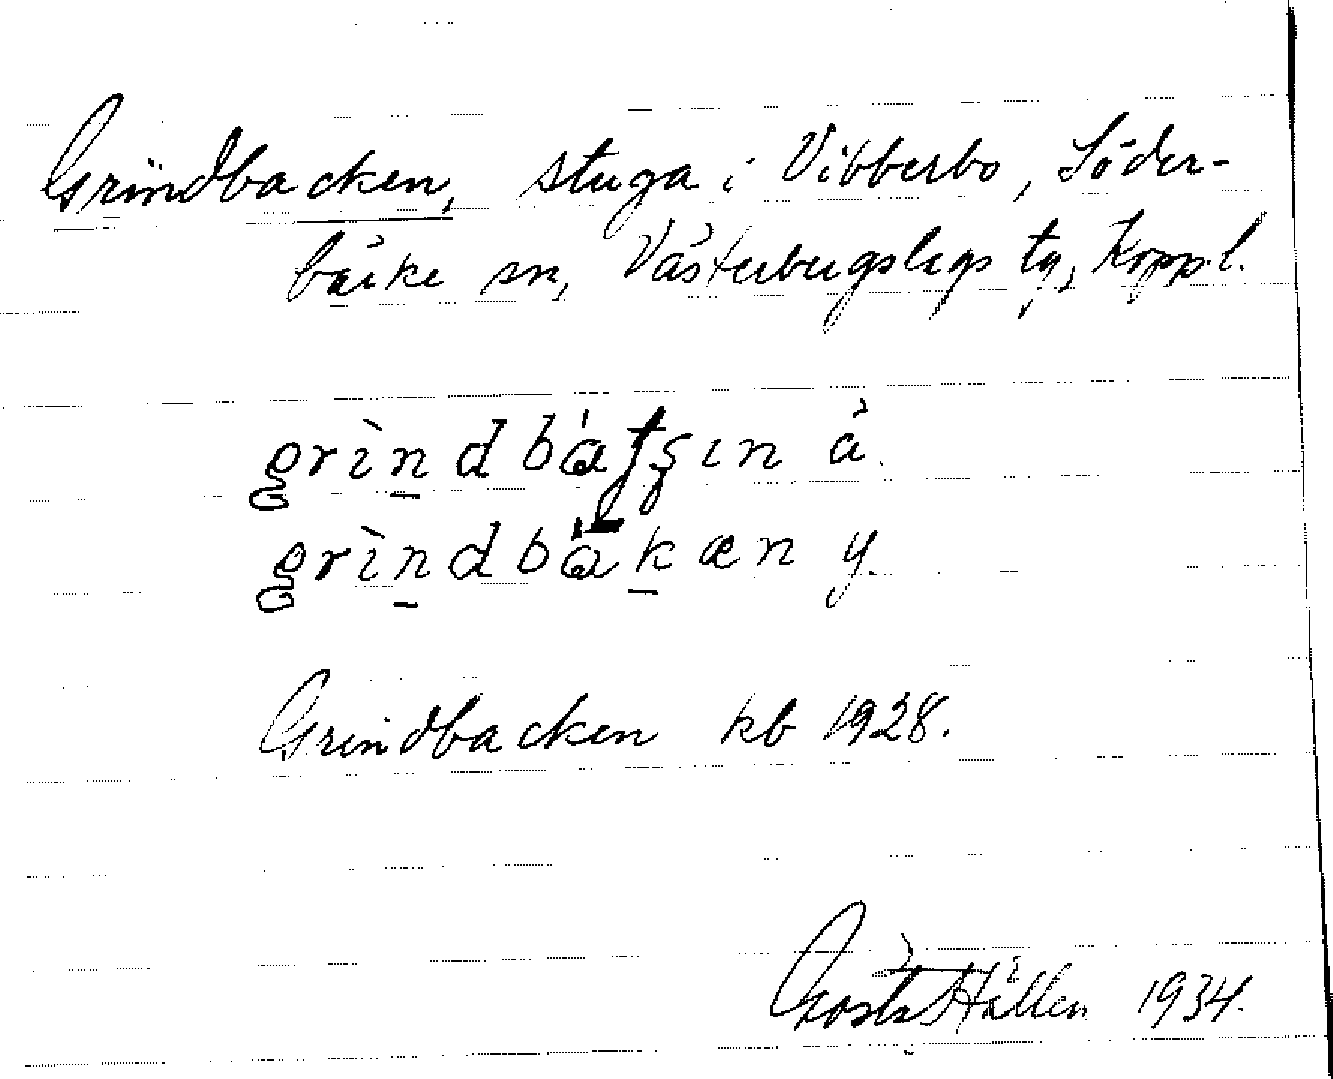 Grindbacken, stuga i Vibberbo, Söder-
bärke sn, Västerbergslags tg, Koppl.
grìndbátʂın ä.
grìndbákæn y.
Grindbacken kb 1928.
Gösta Hállen 1934.